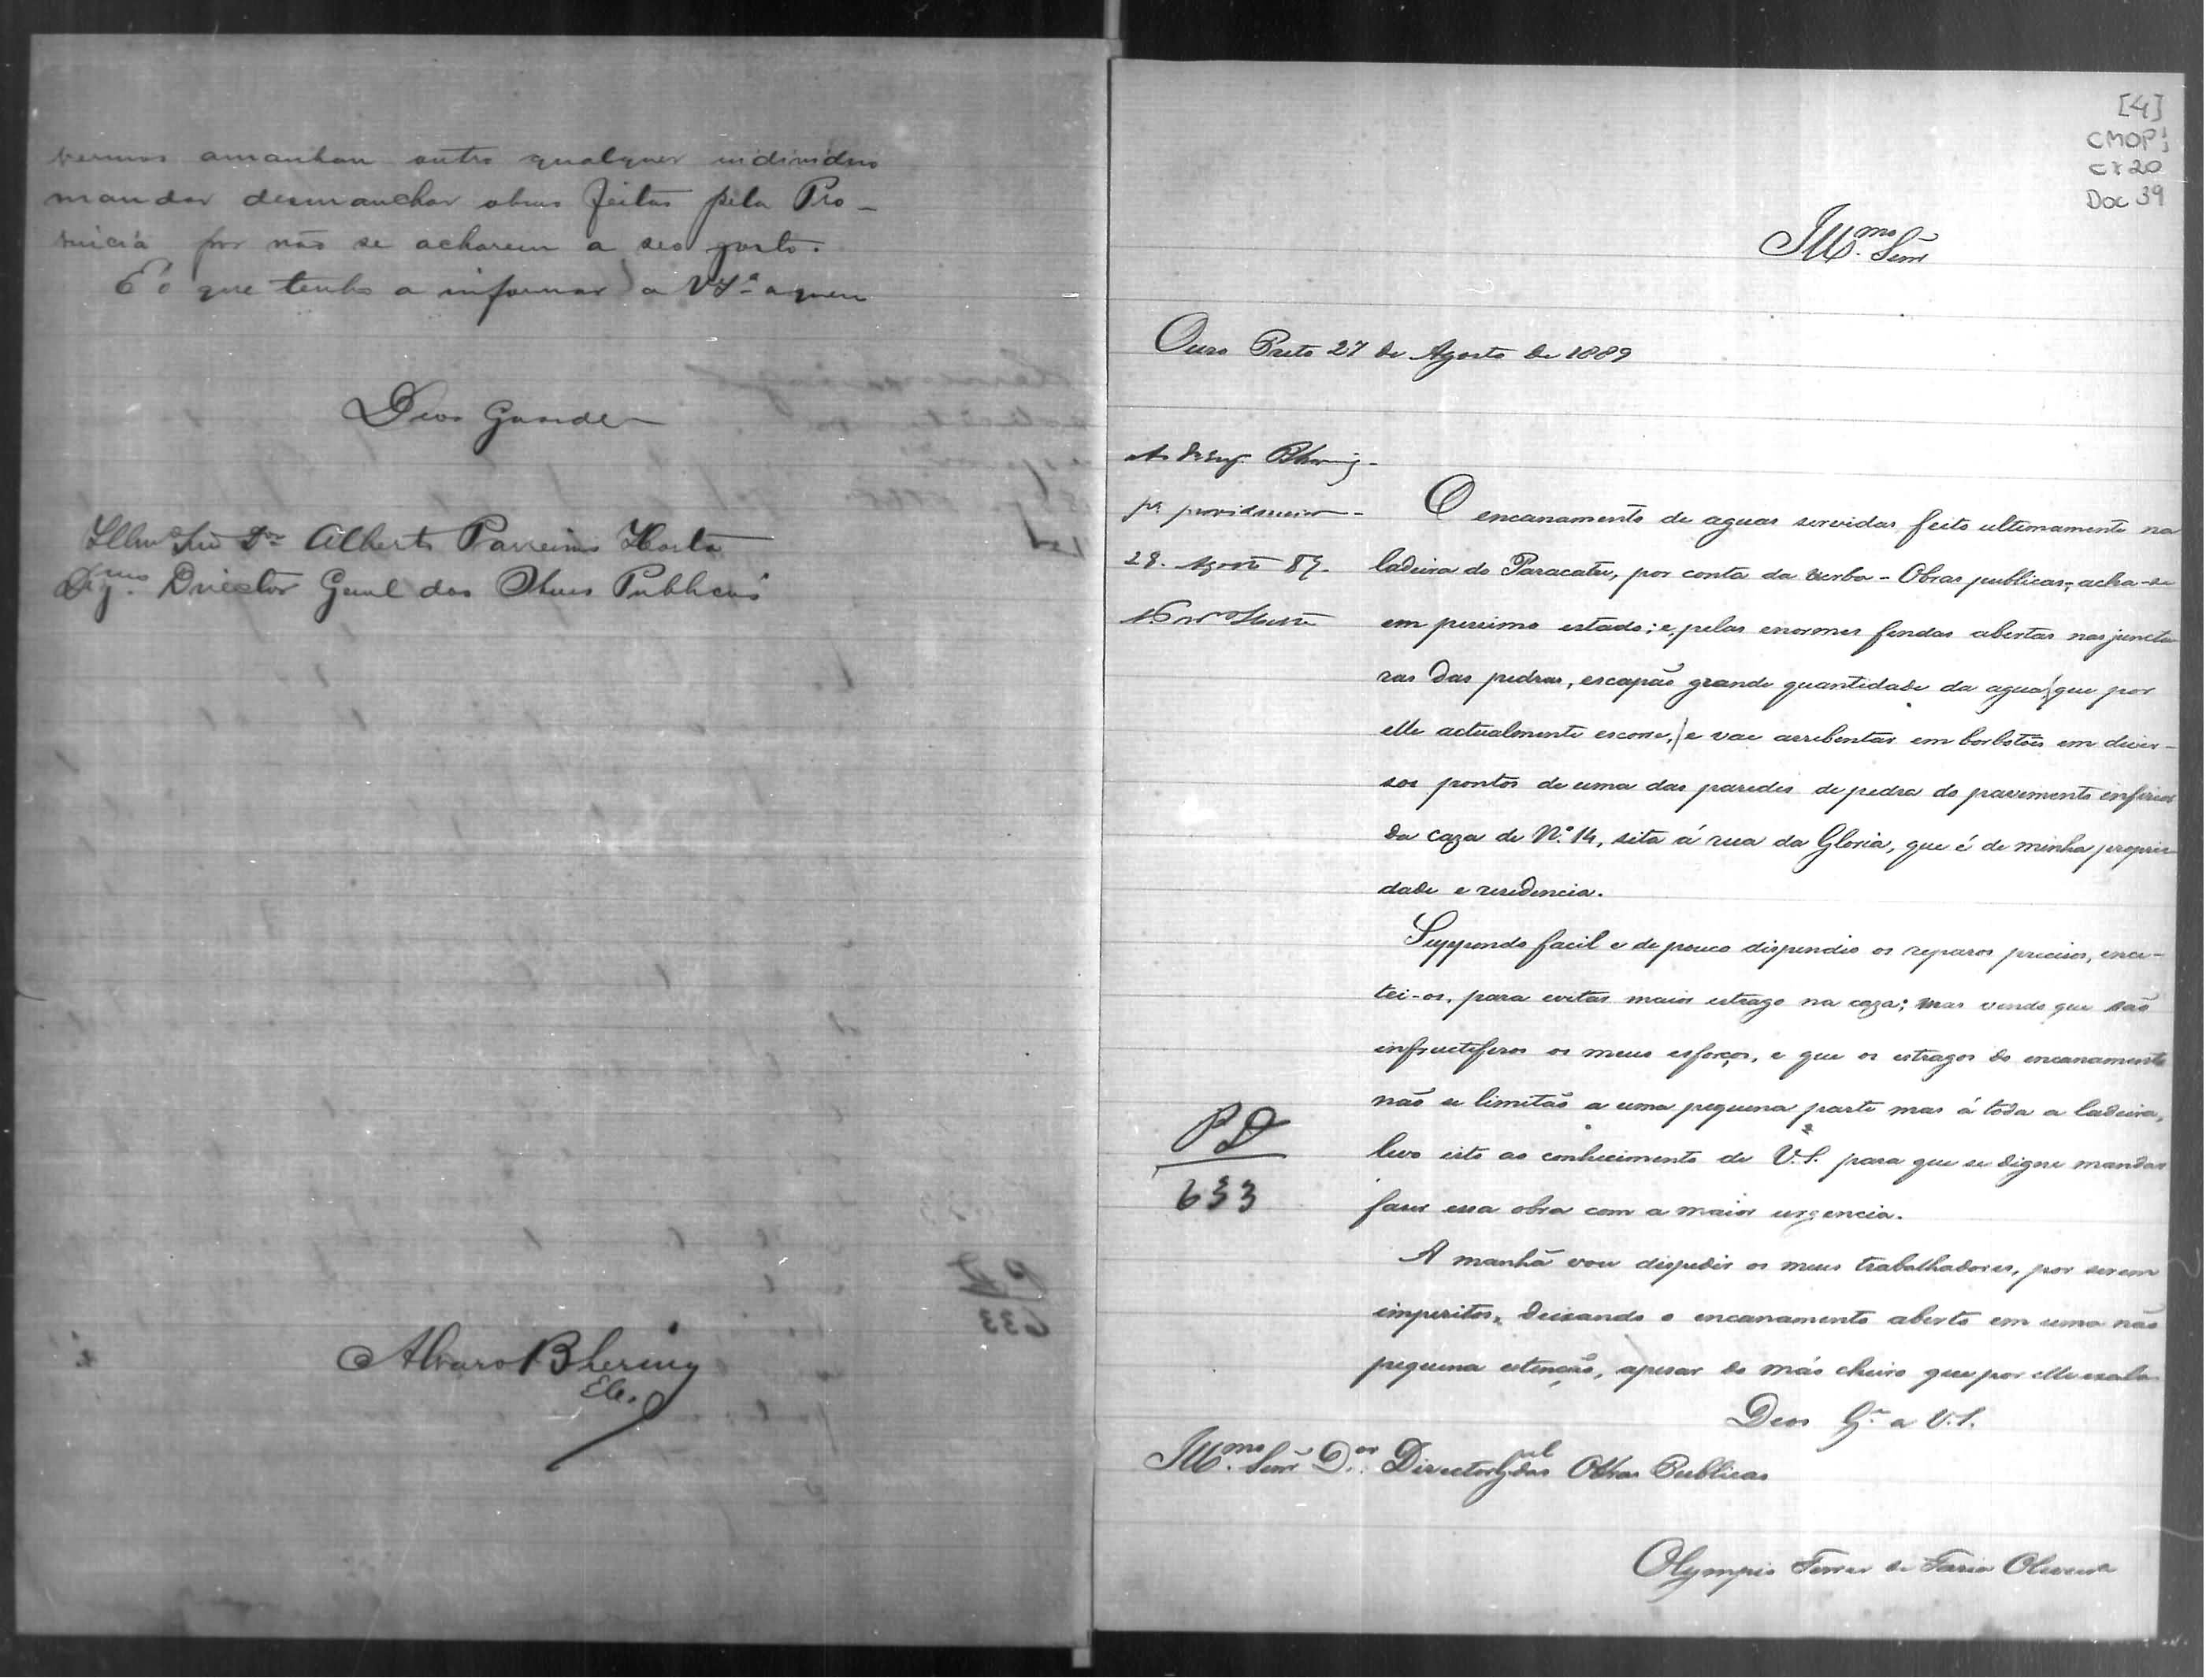 vermos amanhan outro qualquer individuo
mandar desmanchar obras feitas pela Pro-
vincia por não se acharem a seo gosto.
É o que tenho a informar a VSª a quem
Deos Guarde
Illmo Snr Dor Alberto Parreiras Horta
Digmo Director Geral das Obras Publicas
Alvaro Bhering
[4]
CMOP
cx 20
Doc 39
Illmo. Senr
Ouro Preto 27 de Agosto de 1889
Ao Sr Eng. Bhering-
pª providenciar-
28. Agosto 89.
Horta
O encanamento de aguas servidas feito ultimamente na
ladeira do Paracatu, por conta da verba - Obras publicas, acha-se
em pessimo estado; e, pelas enormes fendas abertas nas junctu-
ras das pedras, escapão grande quantidade da agua, que por
elle actualmente escorre, e vae arrebentar em borbotões em diver-
sos pontos de uma das paredes de pedra do pavimento inferior
da caza de Nº 14, sita á rua da Gloria, que é de minha proprie-
dade e residencia.
Suppondo facil e de pouco dispendio os reparos precisos, ence-
tei-os, para evitar maior estrago na caza; mas vendo que são
infructiferos os meus esforços, e que os estragos do encanamento
não se limitão a uma pequena parte mas á toda a ladeira,
levo isto ao conhecimento de V.Sª para que se digne mandar
fazer essa obra com a maior urgencia.
PD
633
A manhã vou dispedir os meus trabalhadores, por serem
imperitos, deixando o encanamento aberto em uma não
pequena estenção, apesar do máo cheiro que por elle exala
Deos Ge a V.S.
Illmo. Senr Dor. Director Gal das Obras Publicas
Olympio Ferrer de Faria Oliveira